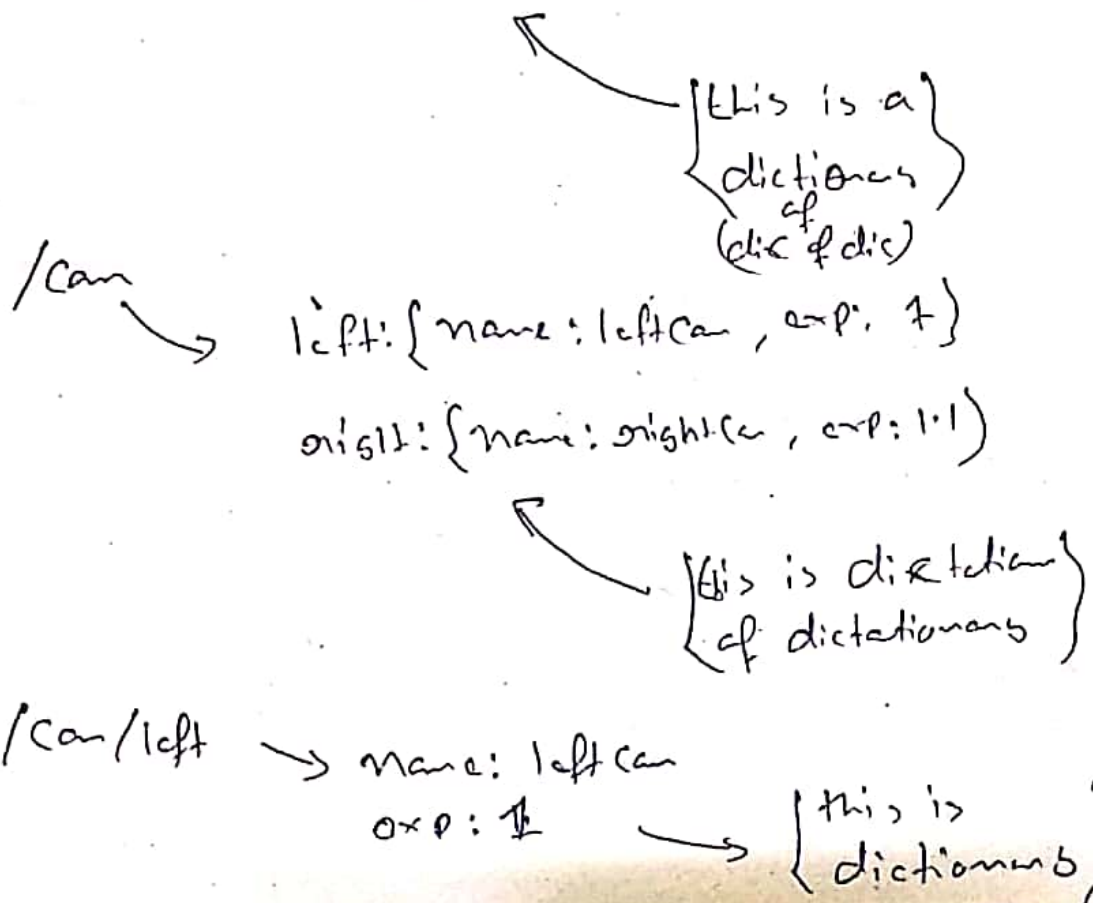 {this is a
dictionary
of
(dic of dic)}
/cam
left: {name: leftcam, exp: 1}
right: {name: rightcam, exp: 1.1)
{this is dictation
of dictationary}
/cam/left
name: leftcam
exp: 1
{this is
dictionary}